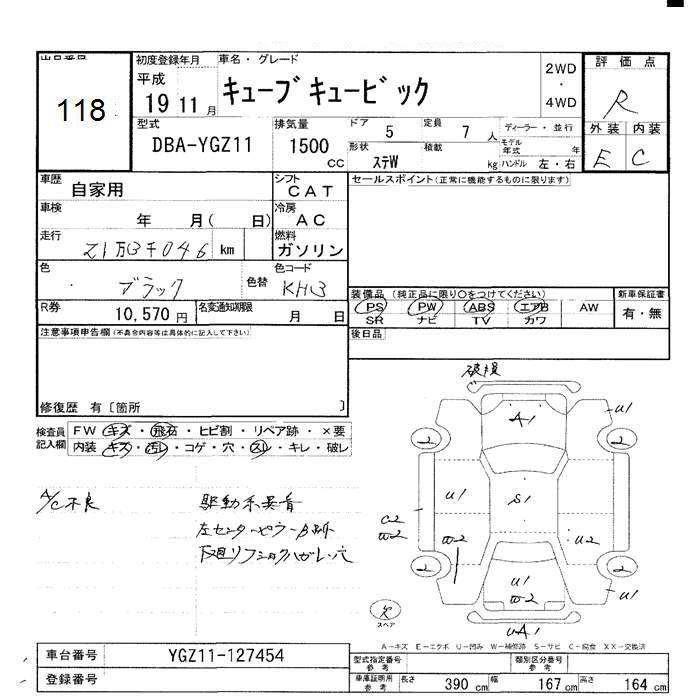 出品番号
118
初度登録年月 車名・グレード
平成
19 11 月
キューブキュービック
2WD
・
4WD
評価点
R
外装 内装
E C
型式
DBA-YGZ11
排気量
1500 CC
ドア 5
定員 7 人
形状 ステW
積載 kg
ディーラー・並行
モデル年式 年
ハンドル 左・右
車歴 自家用
シフト CAT
セールスポイント(正常に機能するものに限ります)
車検 年 月( 日)
冷房 AC
走行 21万3千046 km
燃料 ガソリン
色 ブラック
色替
色コード KH3
装備品 (純正品に限り○をつけてください)
PS PW ABS エアB AW
SR ナビ TV カワ
新車保証書
有・無
R券 10,570 円
名変通知期限 月 日
後日品
注意事項申告欄(不具合内容等は具体的に記入して下さい)
修復歴 有〔箇所 〕
検査員記入欄
FW キズ・飛石・ヒビ割・リペア跡・×要
内装 キズ・汚レ・コゲ・穴・スレ・キレ・破レ
A/C不良
駆動系異音
左センターピラー
破損
A1
U1
2
2
U1
S1
C2
W2
W2
U2
2
2
U1
W2
U1
UA1
欠
スペア
A-キズ E-エクボ U-凹み W-補修跡 S-サビ C-腐食 XX-交換済
車台番号 YGZ11-127454
登録番号
型式指定番号 参考
類別区分番号 参考
車庫証明用 参考
長さ 390 cm 幅 167 cm 高さ 164 cm